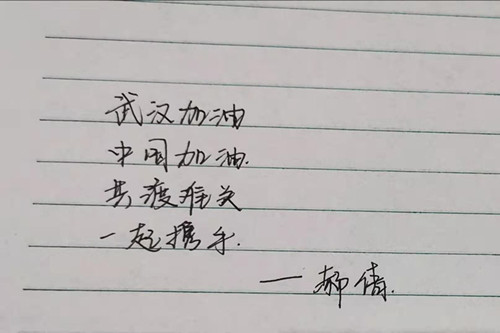 武汉加油
中国加油.
共渡难关
一起携手.
——郝倩.